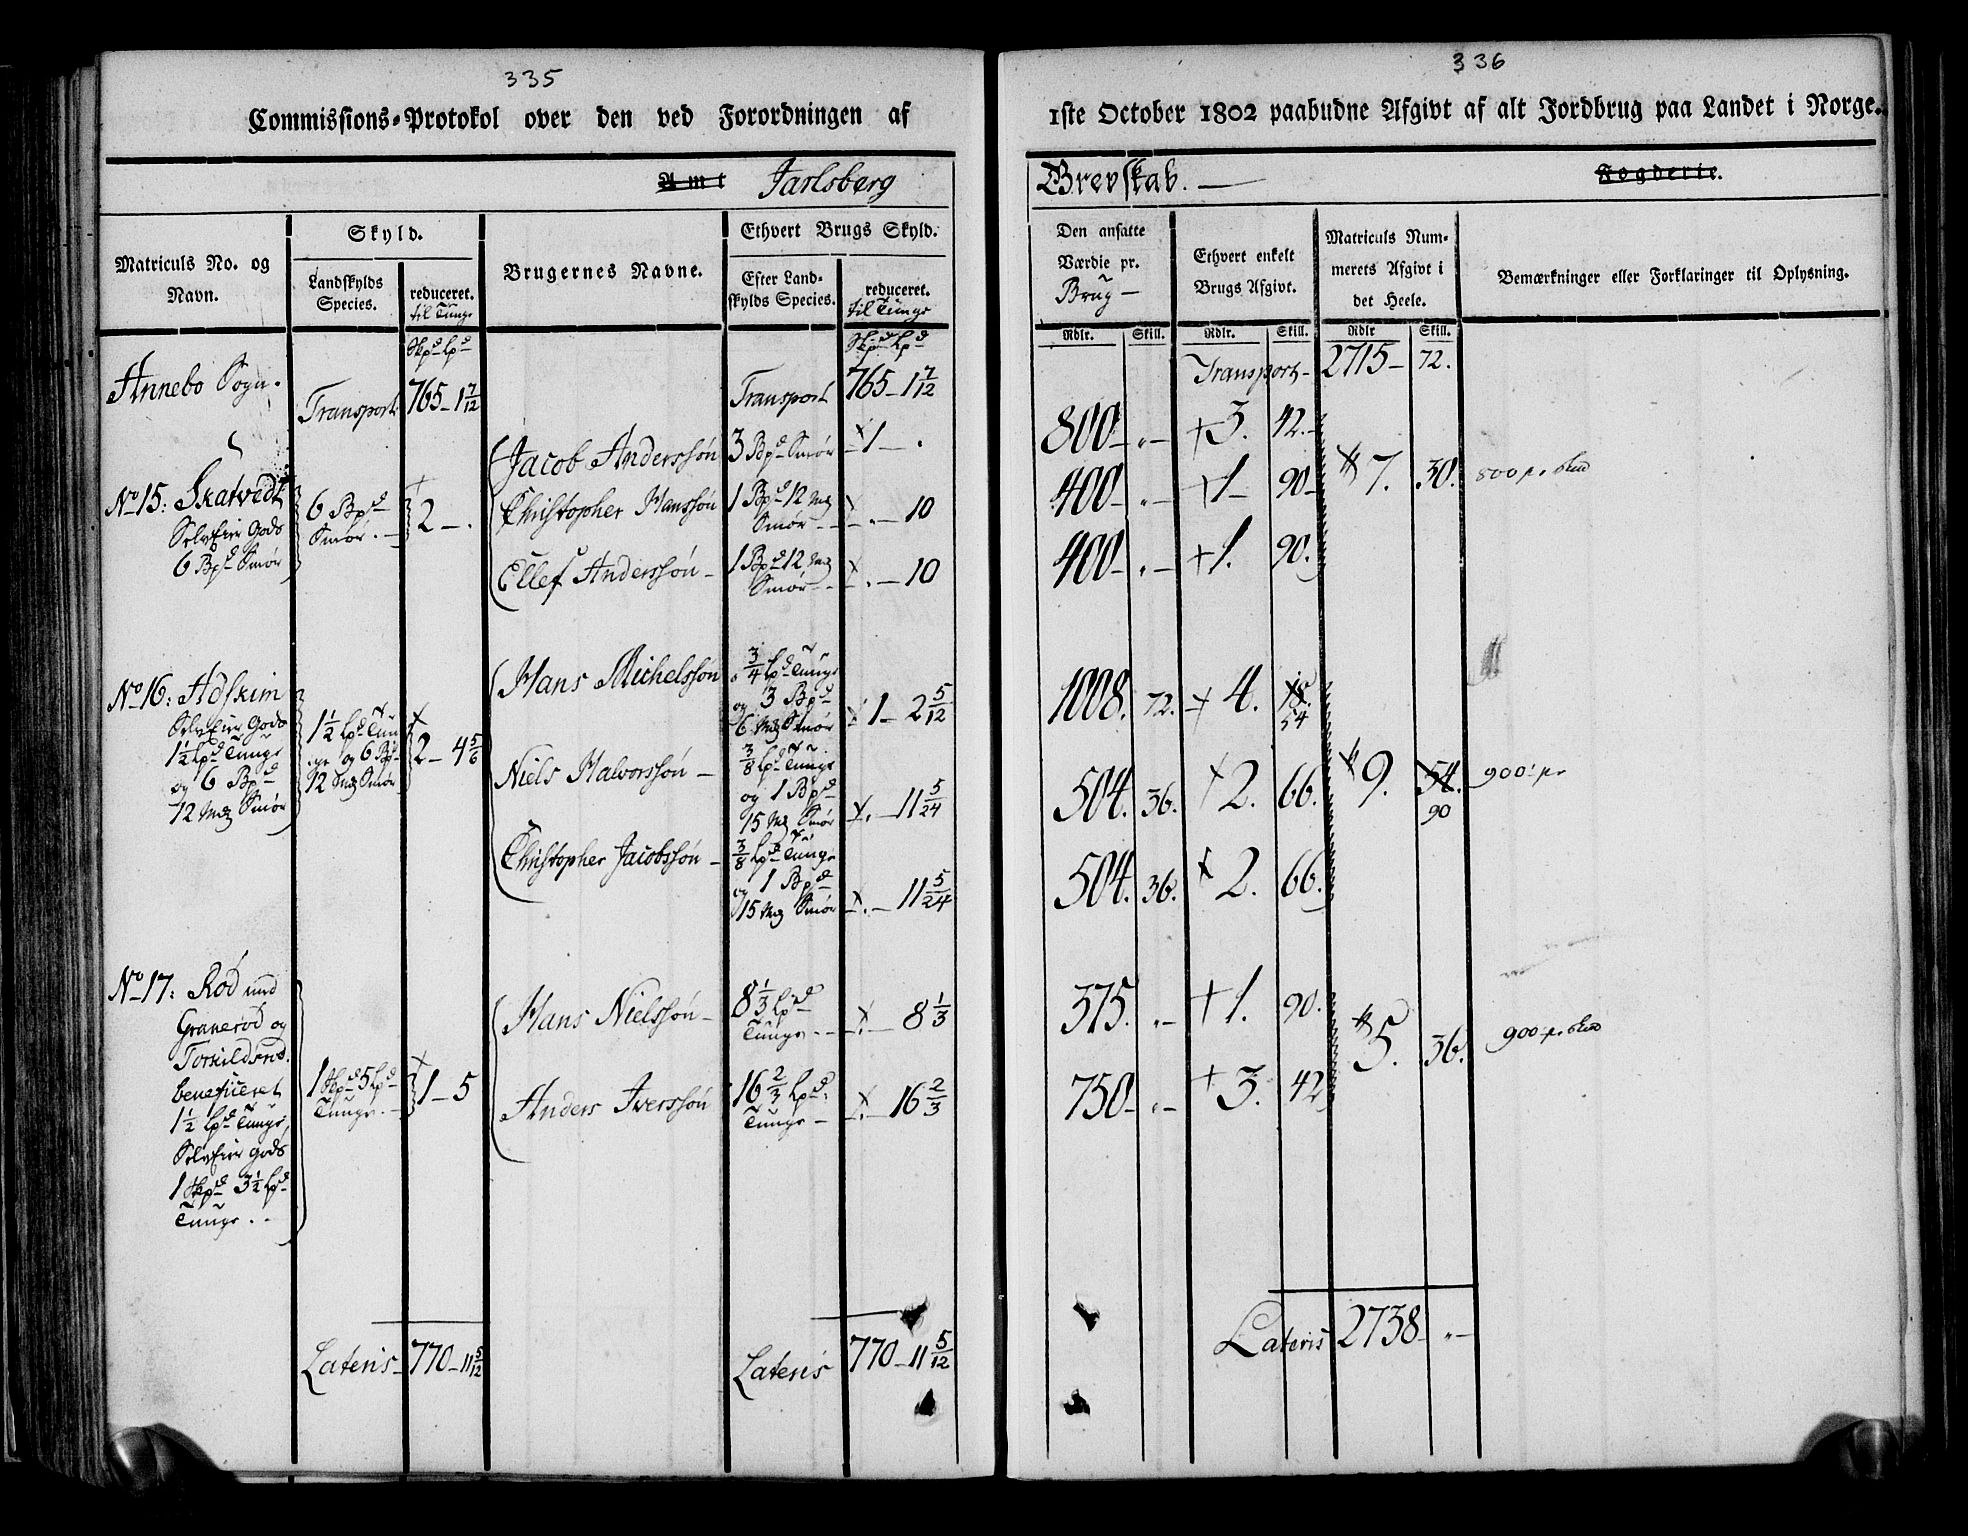 335
Commissions-Protokol over den ved Forordningen af
Amt Jarlsberg
Matriculs No. og Navn.
Skyld.
Landskylds Species.
reduceret.
til Tunge
Brugernes Navne.
Ethvert Brugs Skyld.
Efter Landskylds Species.
reduceret.
til Tunge
Skpd Lpd
Skpd Lpd
Annebo Sogn.
Transport 765 - 1 7/12
Transport 765 - 1 7/12
No 15: Skatvedt
Selveier Gods
6 Bpd Smør
6 Bpd
Smør. -
2 - .
Jacob Anderssøn 3 Bpd Smør 1 - .
Christopher Hanssøn 1 Bpd 12 Mrk
Smør - . - 10
Ellef Anderssøn - 1 Bpd 12 Mrk
Smør - . - 10
No 16: Adskim
Selveier Gods
1½ Lpd Tunge
og 6 Bpd
12 Mrk Smør
1½ Lpd Tun
ge og 6 Bpd
12 Mrk Smør
2 - 4 5/6
Hans Michelssøn
3/4 Lpd Tunge
og 3 Bpd
6 Mrk Smør
1 - 2 5/12
Niels Halvorssøn -
3/8 Lpd Tunge
og 1 Bpd
15 Mrk Smør
. - 11 5/24
Christopher Jacobssøn -
3/8 Lpd Tunge
og 1 Bpd
15 Mrk Smør
. - 11 5/24
No 17: Rød med
Granerød og
Torkildsrød.
beneficeret
1½ Lpd Tunge,
Selveier Gods
1 Skpd 3½ Lpd
Tunge . .
1 Skpd 5 Lpd
Tunge. -
1 - 5
Hans Nielssøn -
8 1/3 Lpd
Tunge - -
. - 8 1/3
Anders Iverssøn
16 2/3 Lpd.
Tunge -
. - 16 2/3
Lateris - 770 - 11 5/12
Lateris 770 - 11 5/12
336
1ste October 1802 paabudne Afgivt af alt Jordbrug paa Landet i Norge.
Grevskab. - Fogderie.
Den ansatte Værdie pr.
Brug -
Ethvert enkelt Brugs Afgivt.
Matriculs Nummerets Afgivt i det Heele.
Bemærkninger eller Forklaringer til Oplysning.
Rdlr. Skill. Rdlr. Skill. Rdlr Skill.
Transport - 2715 - 72.
800 - " - + 3. 42. -
400 - " - + 1 - 90 - 7. 30. 800 pr.
400 - " - + 1. 90.
1008. 72. + 4. 18.
54
504. 36. 2. 66. 9. 54. 900 pr
90
504. 36. 2. 66.
375. " - + 1. 90.
5. 36. 900 pr.
750 - " - + 3. 42
Lateris 2738 - " -